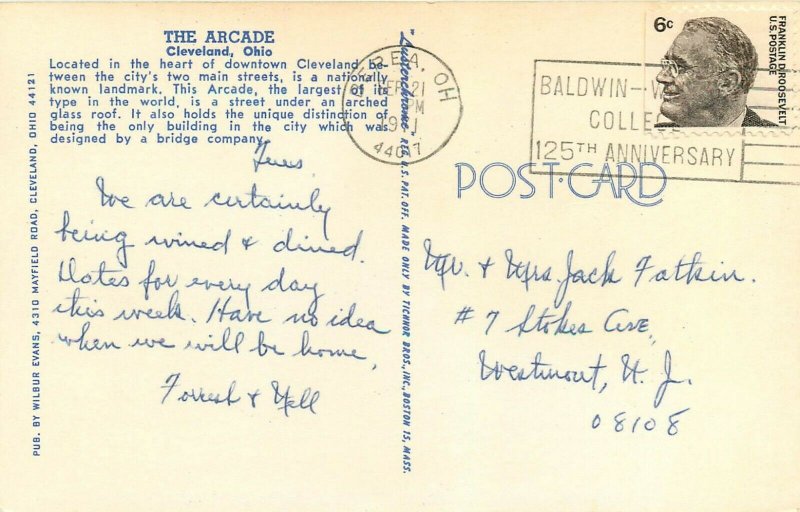 THE ARCADE
Cleveland, Ohio
Located in the heart of downtown Cleveland be-
tween the city's two main streets, is a nationally
known landmark. This Arcade, the largest of its
type in the world, is a street under an arched
glass roof. It also holds the unique distinction of
being the only building in the city which was
designed by a bridge company.
Tues.
We are certainly
being wined & dined.
Dates for every day
this week. Have no idea
when we will be home,
Forrest & Nell
PUB. BY WILBUR EVANS, 4310 MAYFIELD ROAD, CLEVELAND, OHIO 44121
"Austenchrome" REG. U.S. PAT. OFF. MADE ONLY BY TICHNOR BROS., INC., BOSTON 15, MASS.
BEREA, OH
21
PM
44017
BALDWIN-W
COLLE
125TH ANNIVERSARY
6c
FRANKLIN D. ROOSEVELT
U.S. POSTAGE
POST CARD
Mr. & Mrs. Jack Fatkin.
#7 Stokes Ave,
Westmont, N. J.
08108